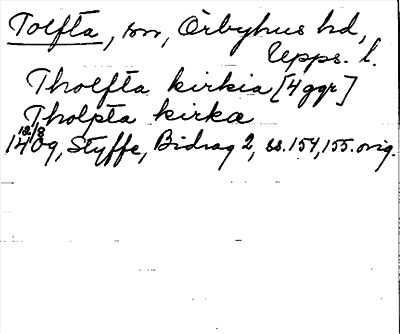 Tolfta, sn, Örbyhus hd,
Upps. l.
Tholfta kirkia [4 ggr]
Tholpta kirka
12/3
1409, Styffe, Bidrag 2, ss. 154, 155. orig.